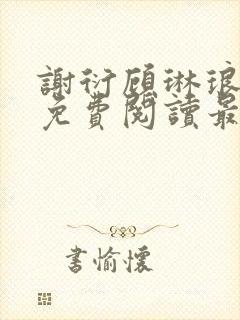 謝衍顧琳琅
免費閱讀最
書愉懷